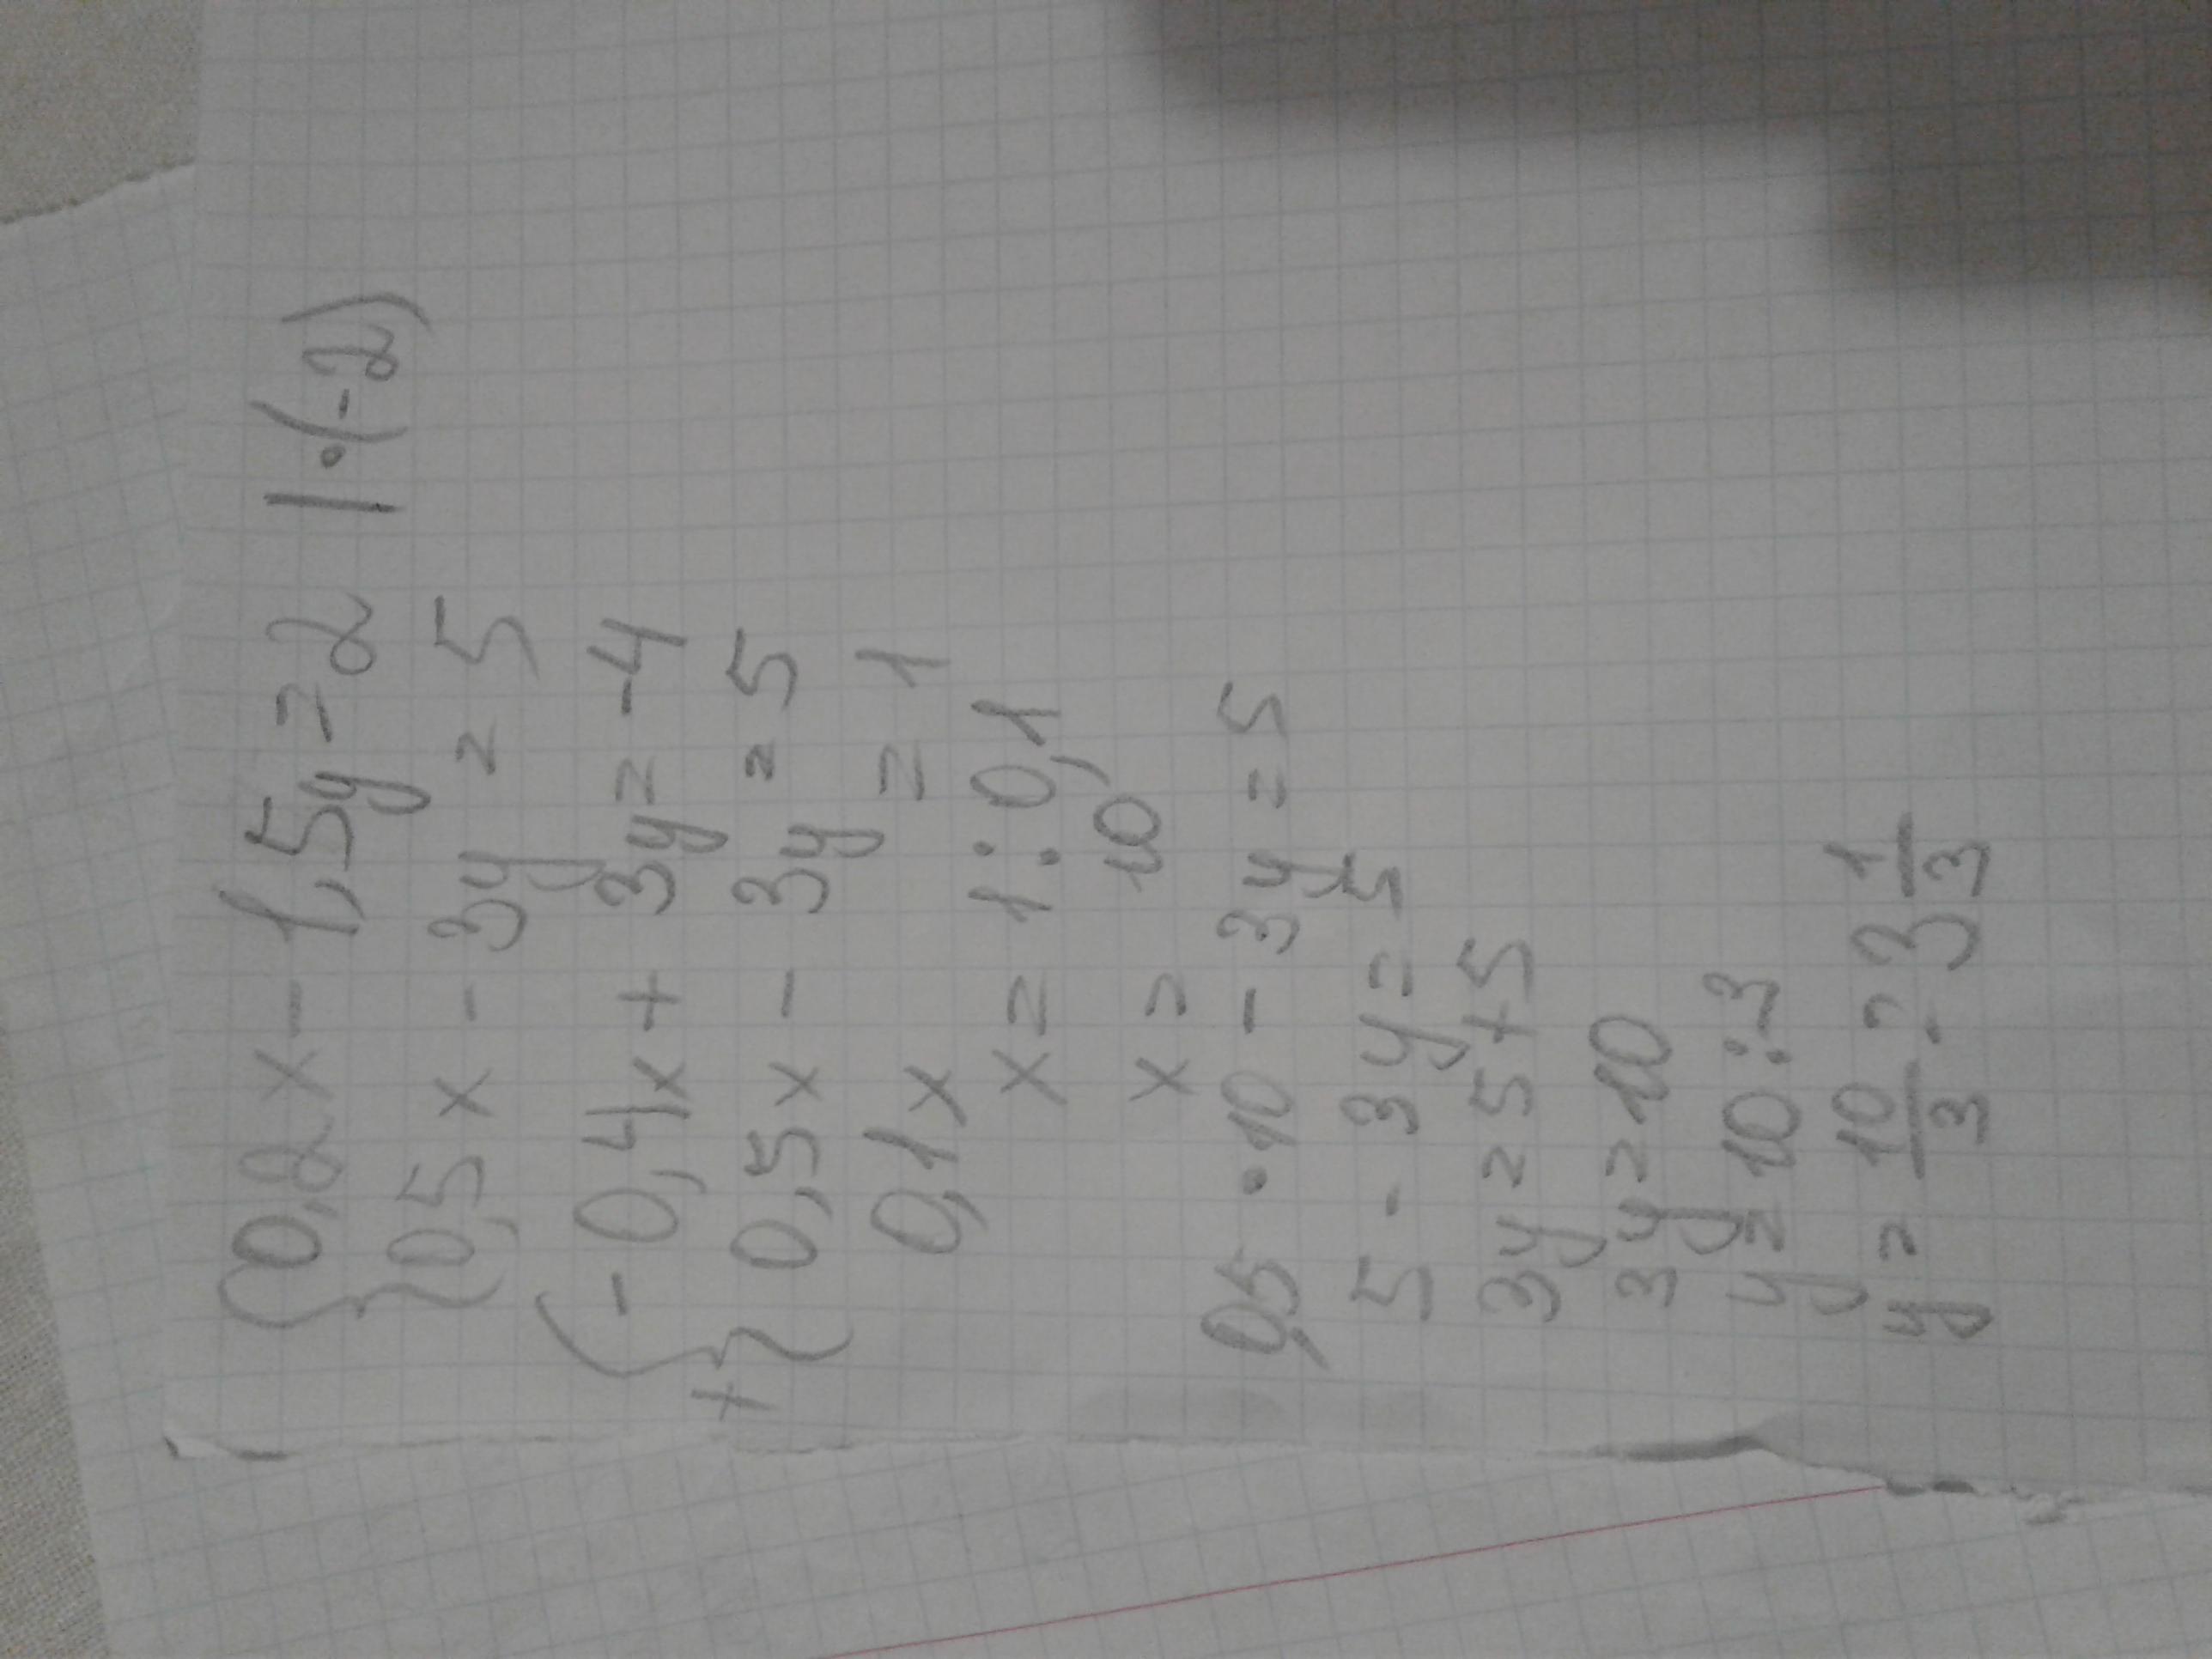 {0,2x - 1,5y = 2 | · (-2)
{0,5x - 3y = 5
{-0,4x + 3y = -4
+{0,5x - 3y = 5
0,1x = 1
x = 1 : 0,1
x = 10
0,5 · 10 - 3y = 5
5 - 3y = 5
3y = 5 + 5
3y = 10
y = 10 : 3
y = 10/3 = 3 1/3